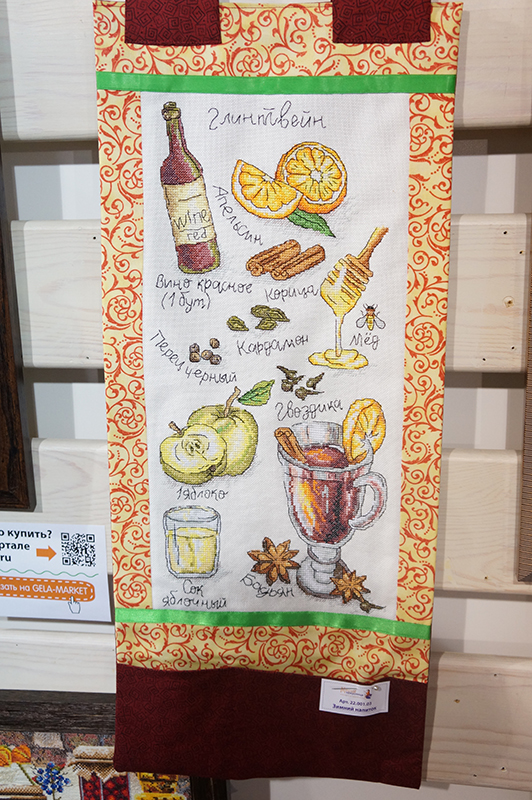 Глинтвейн
Апельсин
wine
red
Вино красное
(1 бут)
Корица
Мёд
Кардамон
Перец черный
Гвоздика
1яблоко
Сок
яблочный
Бадьян
о купить?
ртале
ru
зать на GELA-MARKET
Арт. 22.001.02
Зимний напиток